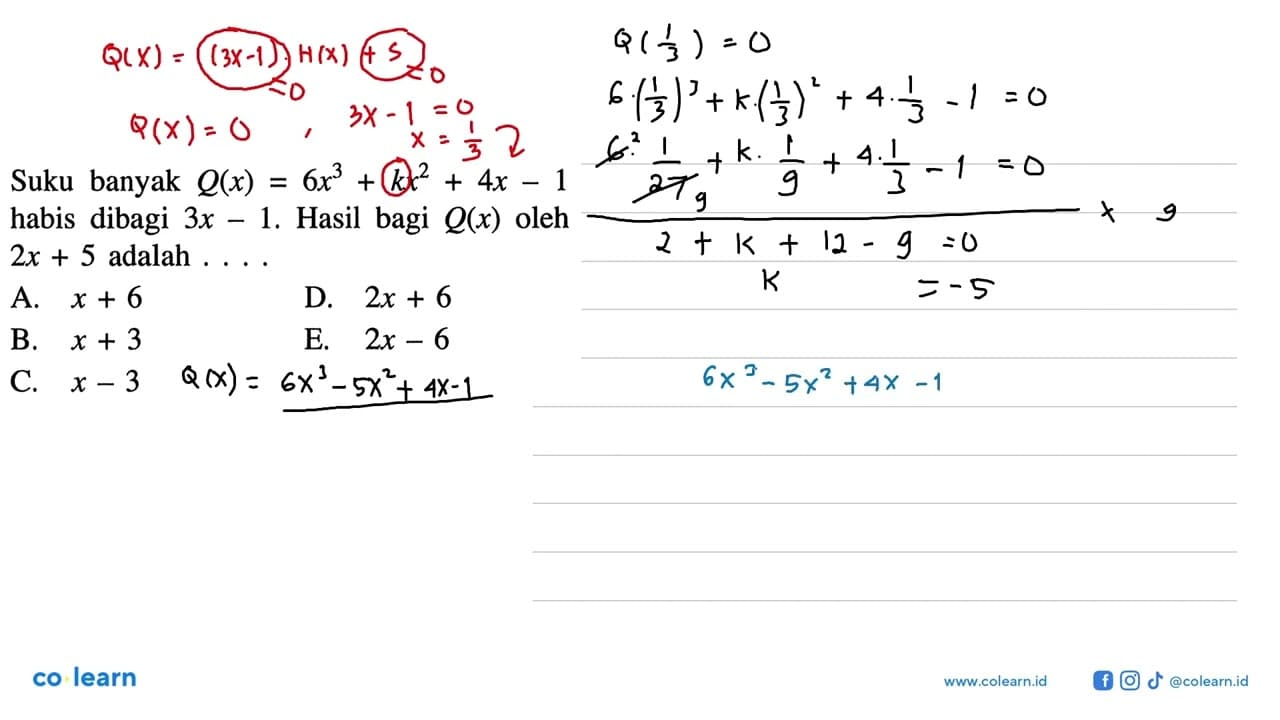 Q(x) = (3x-1). H(x) + S
=0
=0
Q(x) = 0 , 3x - 1 = 0
x = 1/3
Suku banyak Q(x) = 6x³ + kx² + 4x − 1
habis dibagi 3x − 1. Hasil bagi Q(x) oleh
2x + 5 adalah . . . .
A. x + 6
D. 2x + 6
B. x + 3
E. 2x − 6
C. x − 3
Q(x) = 6x³ - 5x² + 4x - 1
Q(1/3) = 0
6.(1/3)³ + k.(1/3)² + 4.1/3 - 1 = 0
6.² 1/27 9 + k. 1/9 + 4.1/3 - 1 = 0
x 9
2 + k + 12 - 9 = 0
k = -5
6x³ - 5x² + 4x - 1
co·learn
www.colearn.id
@colearn.id